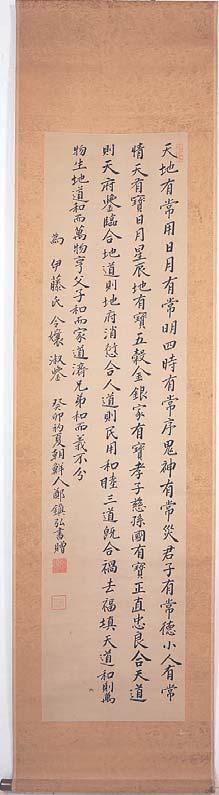 天地有常用日月有常明四時有常序鬼神有常災君子有常德小人有常
情天有寶日月星辰地有寶五穀金銀家有寶孝子慈孫國有寶正直忠良合天道
則天府鑒臨合地道則地府消愆合人道則民用和睦三道旣合禍去福填天道和則萬
物生地道和而萬物亨父子和而家道濟兄弟和而義不分
為 伊藤氏令孃淑鑒 癸卯初夏朝鮮人鄭鎭弘書贈